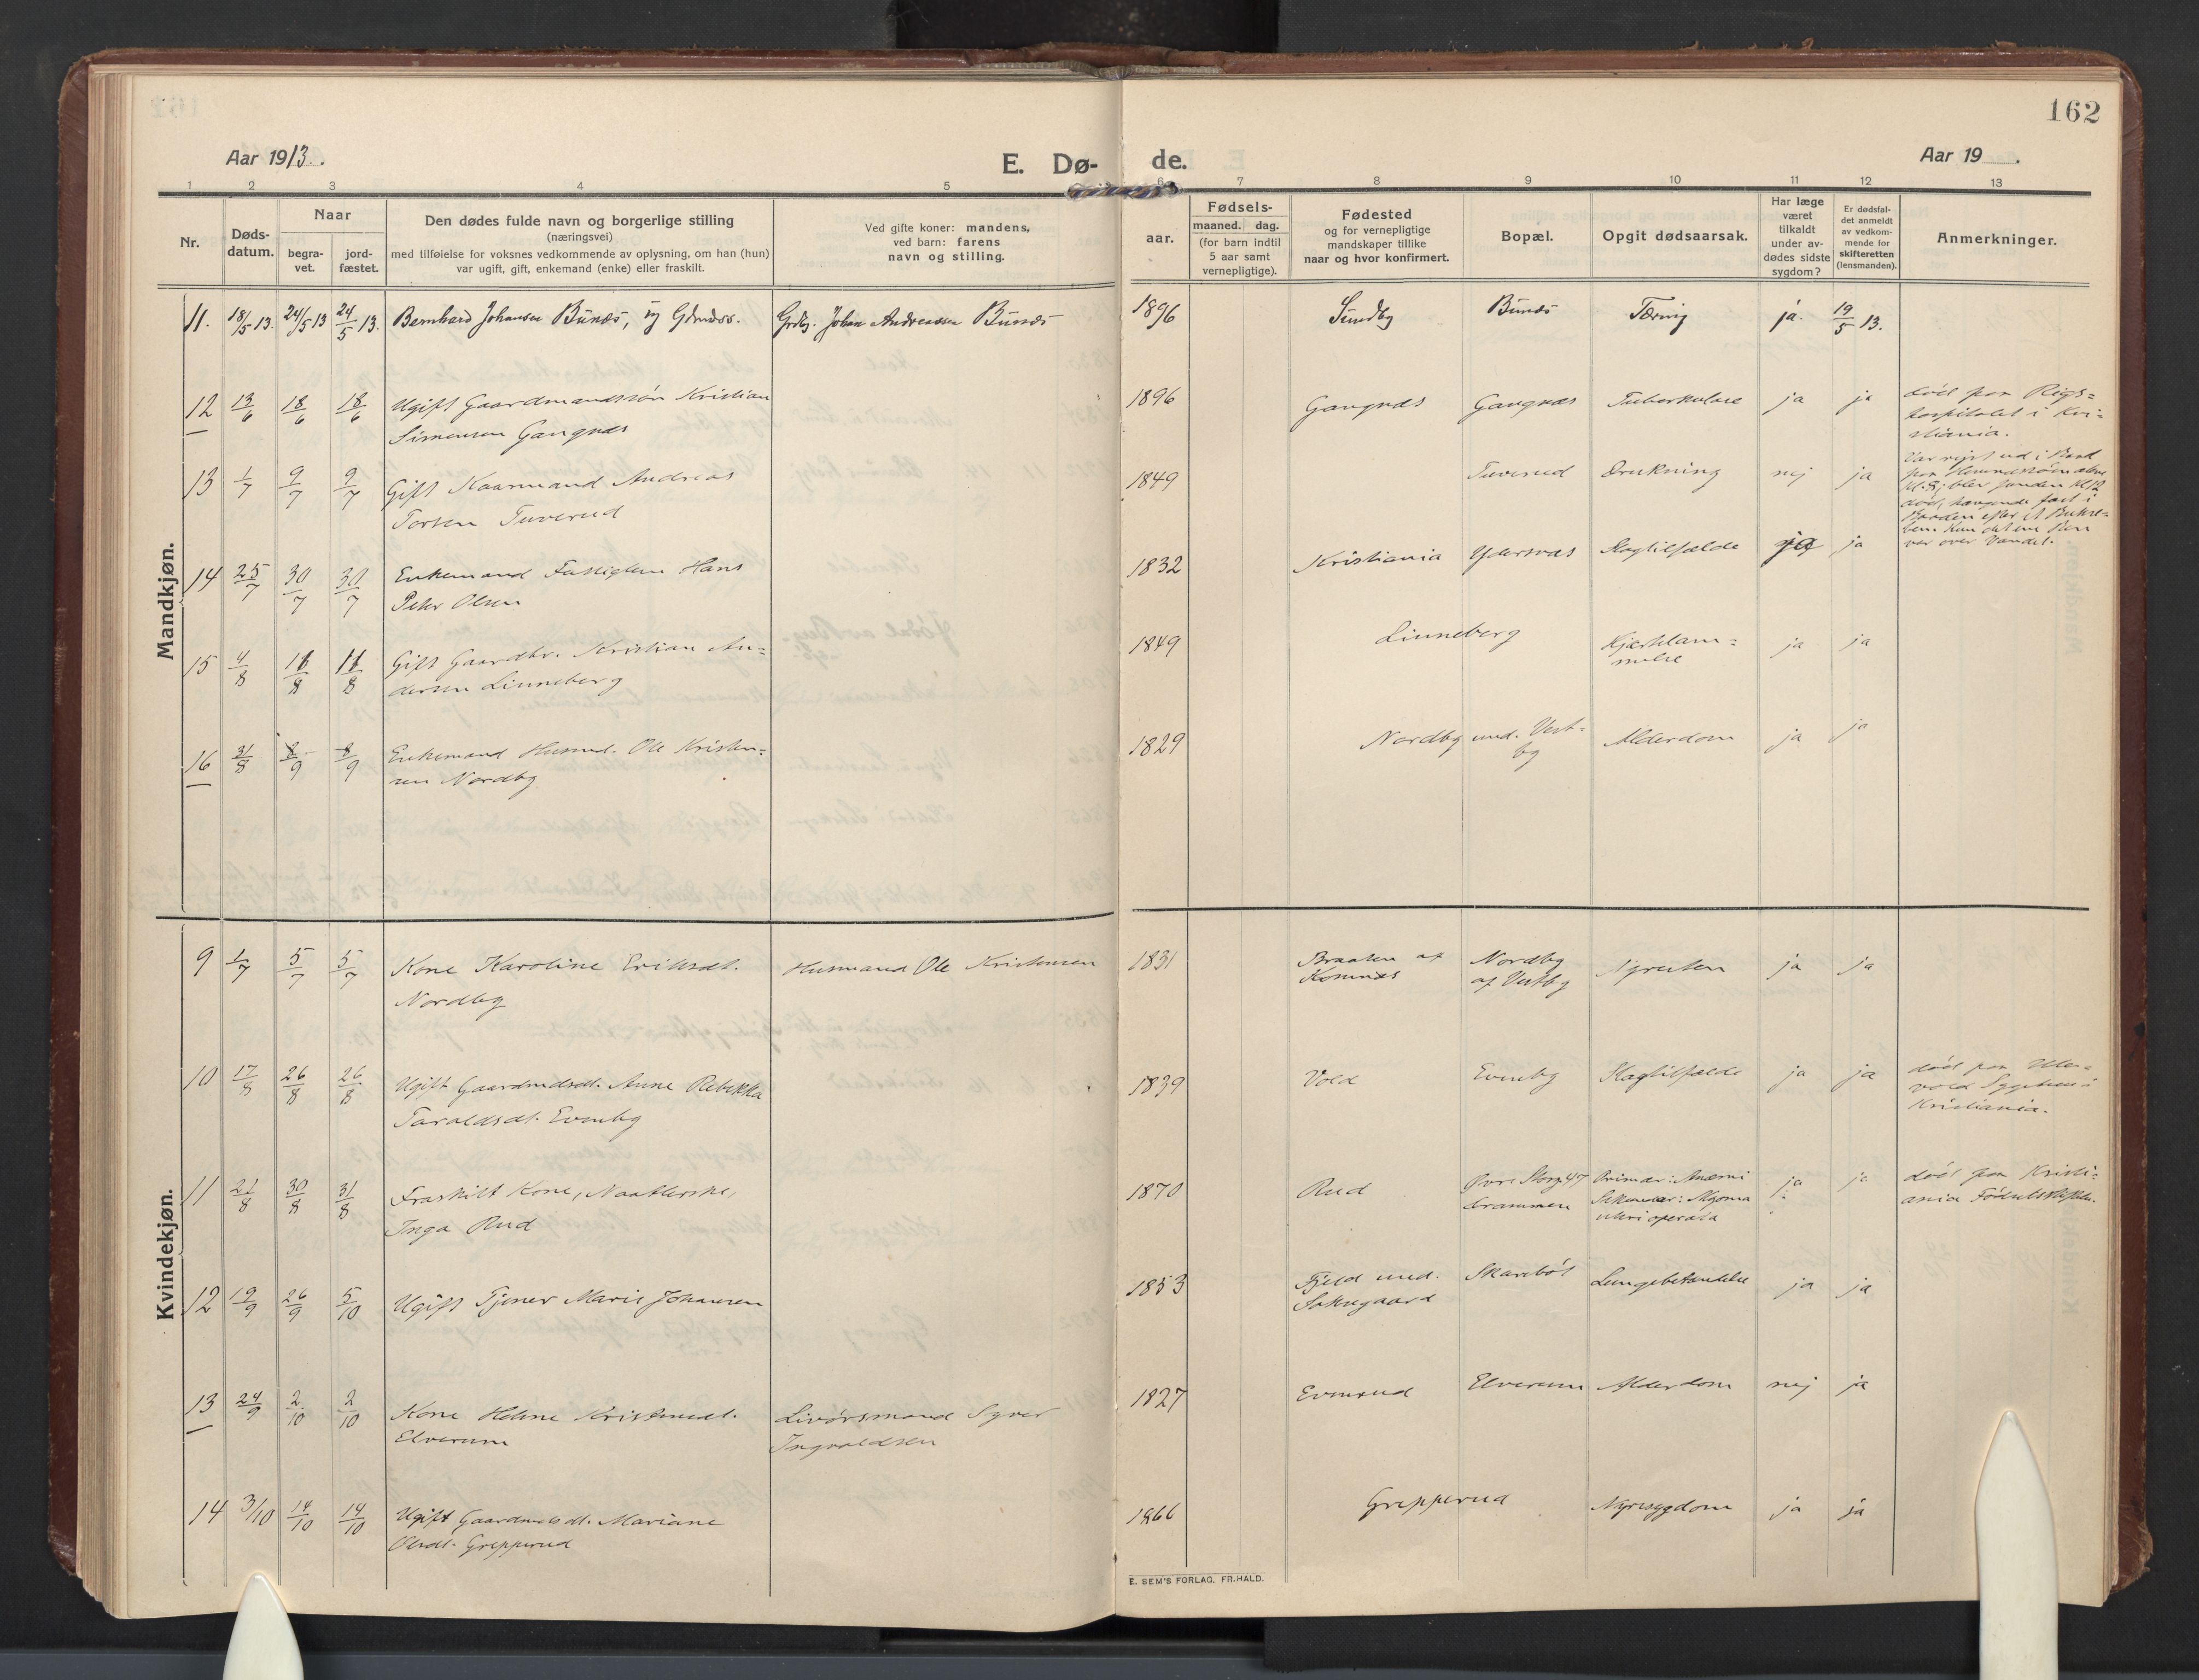 162
Aar 1913.
E. Dø- de.
Aar 19 .
1 2 3 4 5 6 7 8 9 10 11 12 13
Nr.
Døds-
datum.
Naar
begra-
vet.
jord-
fæstet.
Den dødes fulde navn og borgerlige stilling
(næringsvei)
med tilføielse for voksnes vedkommende av oplysning, om han (hun)
var ugift, gift, enkemand (enke) eller fraskilt.
Ved gifte koner: mandens,
ved barn: farens
navn og stilling.
Fødsels-
aar.
maaned. dag.
(for barn indtil
5 aar samt
vernepligtige).
Fødested
og for vernepligtige
mandskaper tillike
naar og hvor konfirmert.
Bopæl.
Opgit dødsaarsak.
Har læge
været
tilkaldt
under av-
dødes sidste
sygdom?
Er dødsfal-
det anmeldt
av vedkom-
mende for
skifteretten
(lensmanden).
Anmerkninger.
Mandkjøn.
11. 18/5 13. 24/5 13 24/5 13. Bernhard Johansen Bunæs, ug Gdmdss. Grdbg. Johan Andreassen Bunæs 1896 Sundby Bunæs Tæring ja. 19/5 13.
12 13/6 18/6 18/6 Ugift Gaardmandssøn Kristian
Simensen Gangnæs 1896 Gangnæs Gangnæs Tuberkulose ja ja død paa Rigs=
hospitalet i Kri=
stiania.
13 1/7 9/7 9/7 Gift Kaarmand Andreas
Torsen Tuverud 1849 Tuverud Drukning nej ja
Var rejst ud i Baad
død, hængende fast i
var over Vandet.
14 25/7 30/7 30/7 Enkemand Fattiglem Hans
Peter Olsen 1832 Kristiania Ydersnæs Slagtilfælde ja ja
15 4/8 11/8 11/8 Gift Gaardbr. Kristian An=
dersen Linneberg 1849 Linneberg Hjertelam=
melse ja ja
16 31/8 8/9 8/9 Enkemand Husmd. Ole Kristen=
sen Nordby 1829 Nordby und. Vest=
by Alderdom ja ja
Kvindekjøn.
9 1/7 5/7 5/7 Kone Karoline Eriksdt.
Nordby Husmand Ole Kristensen 1831 Braaten af
Komnæs Nordby
af Vestby Nyresten ja ja
10 17/8 26/8 26/8 Ugift Gaardmdsdt. Anne Rebekka
Taraldsdt. Evenby 1839 Vold Evenby Slagtilfælde ja ja død paa Ulle=
vold Sygehus i
Kristiania.
11 21/8 30/8 31/8 Fraskilt Kone, Naatlerske,
Inga Rud 1870 Rud Øvre Storg. 47
Drammen Primær: Anæmi
Sekundær: Myoma
uteri operata ja ja død paa Kristi=
ania Fødselsstiftelse.
12 19/9 26/9 5/10 Ugift Tjener Marie Johansen 1853 Fjeld und.
Søknegaard Skarebøl Lungebetændelse ja ja
13 24/9 2/10 2/10 Kone Helene Kristensdt.
Elverum Livørsmand Syver
Ingvaldsen 1827 Evenrud Elverum Alderdom nej ja
14 3/10 14/10 14/10 Ugift Gaardmdsdt. Mariane
Olsdt. Grepperud 1866 Grepperud Nyresygdom ja ja
E. SEM'S FORLAG, FR.HALD.